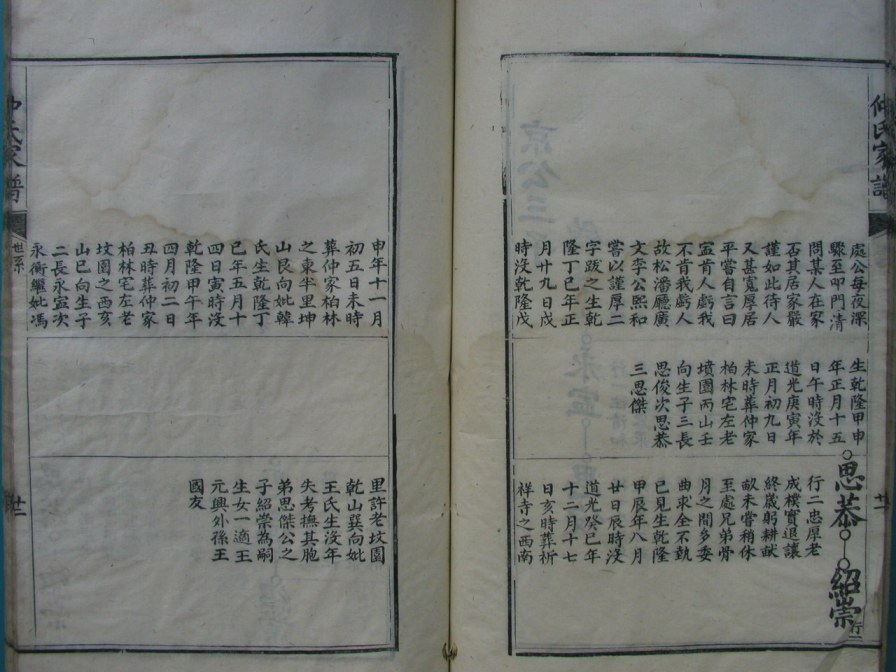 仲氏家譜
處公每夜深
驟至叩門清
問某人在家
否其居家嚴
謹如此待人
又甚寬厚居
平嘗自言曰
寧肯人虧我
不肯我虧人
故松潘廳廣
文李公熙和
嘗以謹厚二
字跋之生乾
隆丁巳年正
月廿九日戌
時沒乾隆戊
生乾隆甲申
年正月十五
日午時沒於
道光庚寅年
正月初九日
未時葬仲家
柏林宅左老
墳園丙山壬
向生子三長
思俊次思恭
三思傑
思恭
紹崇
行二
行二忠厚老
成樸實退讓
終歲躬耕猷
畝未嘗稍休
至處兄弟骨
月之間多委
曲求全不執
已見生乾隆
甲辰年八月
廿日辰時沒
道光癸巳年
十二月十七
日亥時葬祈
祥寺之西南
廿一
申年十一月
初五日未時
葬仲家柏林
之東半里坤
山艮向妣韓
氏生乾隆丁
巳年五月十
四日寅時沒
乾隆甲午年
四月初二日
丑時葬仲家
柏林宅左老
墳園之西亥
山巳向生子
二長永寧次
永衡繼妣馮
里許老墳園
乾山巽向妣
王氏生沒年
失考撫其胞
弟思傑公之
子紹崇為嗣
生女一適王
元興外孫王
國友
氏家譜
世系
廿一